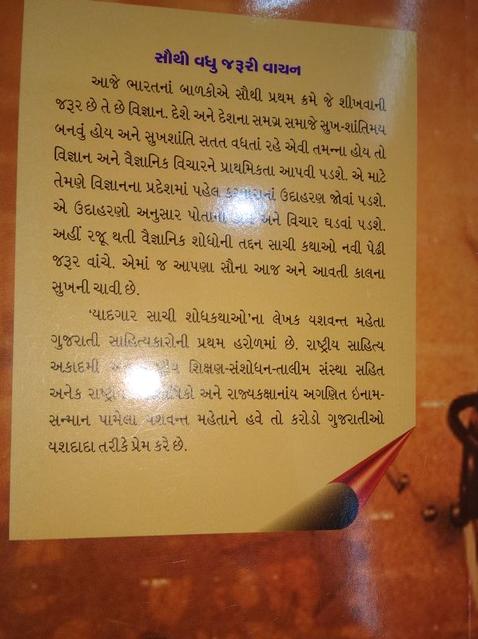 સૌથી વધુ જરૂરી વાચન
આજે ભારતનાં બાળકોએ સૌથી પ્રથમ ક્રમે જે શીખવાની
જરૂર છે તે છે વિજ્ઞાન. દેશે અને દેશના સમગ્ર સમાજે સુખ-શાંતિમય
બનવું હોય અને સુખશાંતિ સતત વધતાં રહે એવી તમન્ના હોય તો
વિજ્ઞાન અને વૈજ્ઞાનિક વિચારને પ્રાથમિકતા આપવી પડશે. એ માટે
તેમણે વિજ્ઞાનના પ્રદેશમાં પહેલ કરનારાનાં ઉદાહરણ જોવાં પડશે.
એ ઉદાહરણો અનુસાર પોતાનાં અને વિચાર ઘડવાં પડશે.
અહીં રજૂ થતી વૈજ્ઞાનિક શોધોની તદ્દન સાચી કથાઓ નવી પેઢી
જરૂર વાંચે. એમાં જ આપણા સૌના આજ અને આવતી કાલના
સુખની ચાવી છે.
‘યાદગાર સાચી શોધકથાઓ’ના લેખક યશવન્ત મહેતા
ગુજરાતી સાહિત્યકારોની પ્રથમ હરોળમાં છે. રાષ્ટ્રીય સાહિત્ય
અકાદમી શિક્ષણ-સંશોધન-તાલીમ સંસ્થા સહિત
અનેક અને રાજ્યકક્ષાનાંય અગણિત ઇનામ-
સન્માન પામેલા યશવન્ત મહેતાને હવે તો કરોડો ગુજરાતીઓ
યશદાદા તરીકે પ્રેમ કરે છે.